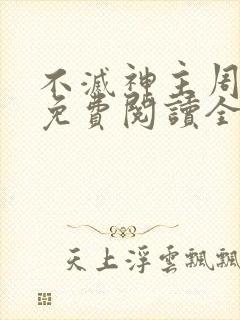 不滅神主周
免費閱讀全
天上浮雲飄飄